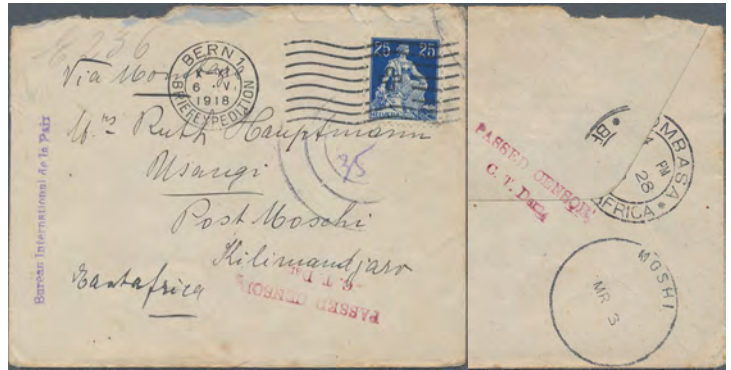 E 236
Via Mombasa
BERN 1a
6 V
1918
BRIEFEXPEDITION
25 25
HELVETIA
Mrs Ruth Hauptmann
Usangi
Post Moschi
Kilimandjaro
Eastafrica
35
Bureau International de la Paix
PASSED CENSOR
C. T. D
PASSED CENSOR
C. T. D
MOMBASA
PM
28
AFRICA
MOSHI
MR 3